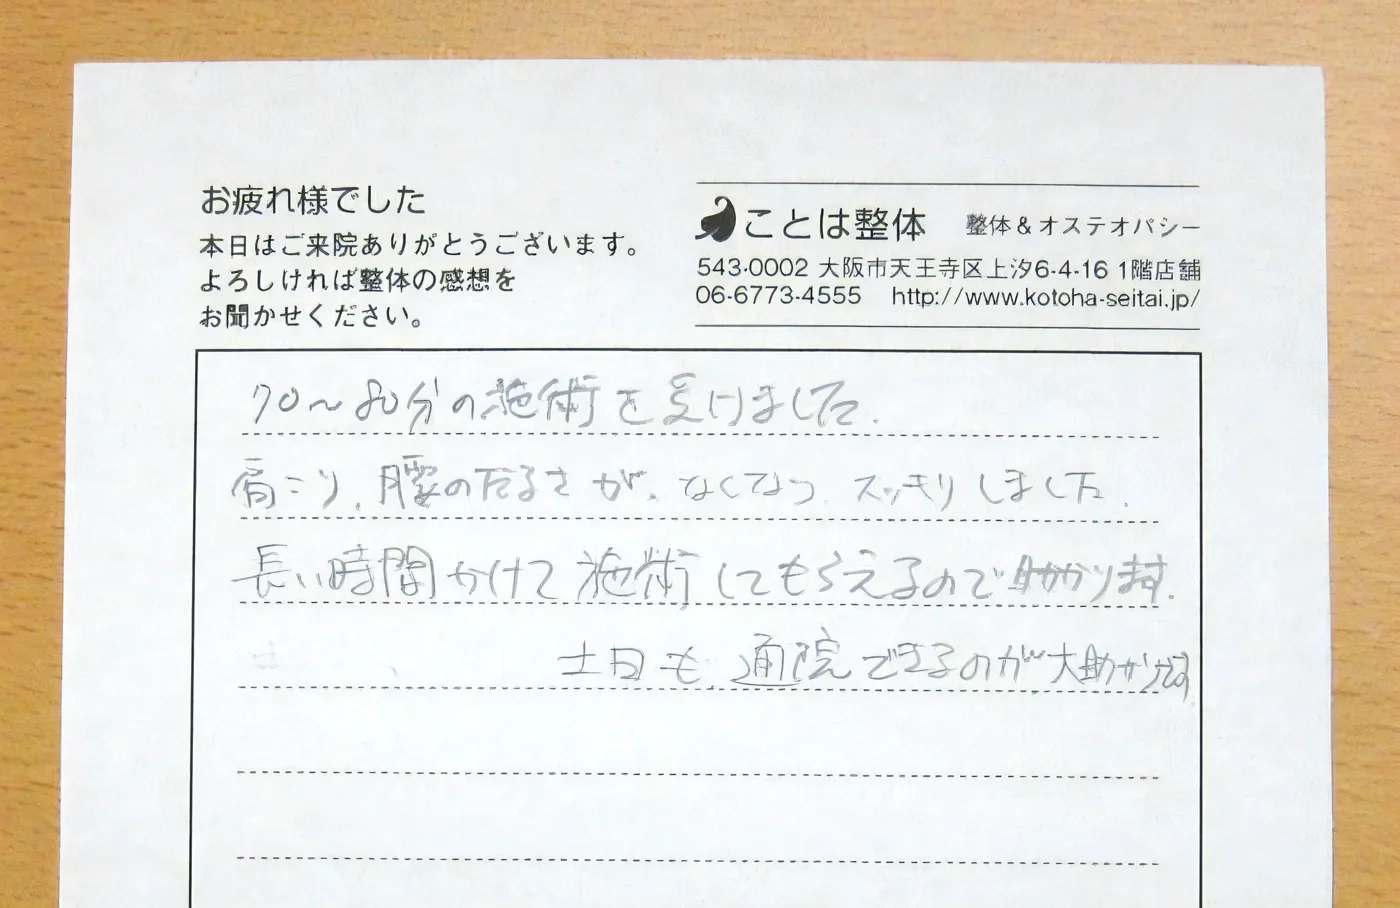 お疲れ様でした
本日はご来院ありがとうございます。
よろしければ整体の感想を
お聞かせください。
ことは整体 整体&オステオパシー
543-0002 大阪市天王寺区上汐6-4-16 1階店舗
06-6773-4555 http://www.kotoha-seitai.jp/
70～80分の施術を受けました.
肩こり、腰のだるさが、なくなり、スッキリしました.
長い時間かけて施術してもらえるので助かります.
土日も通院できるのが大助かりです